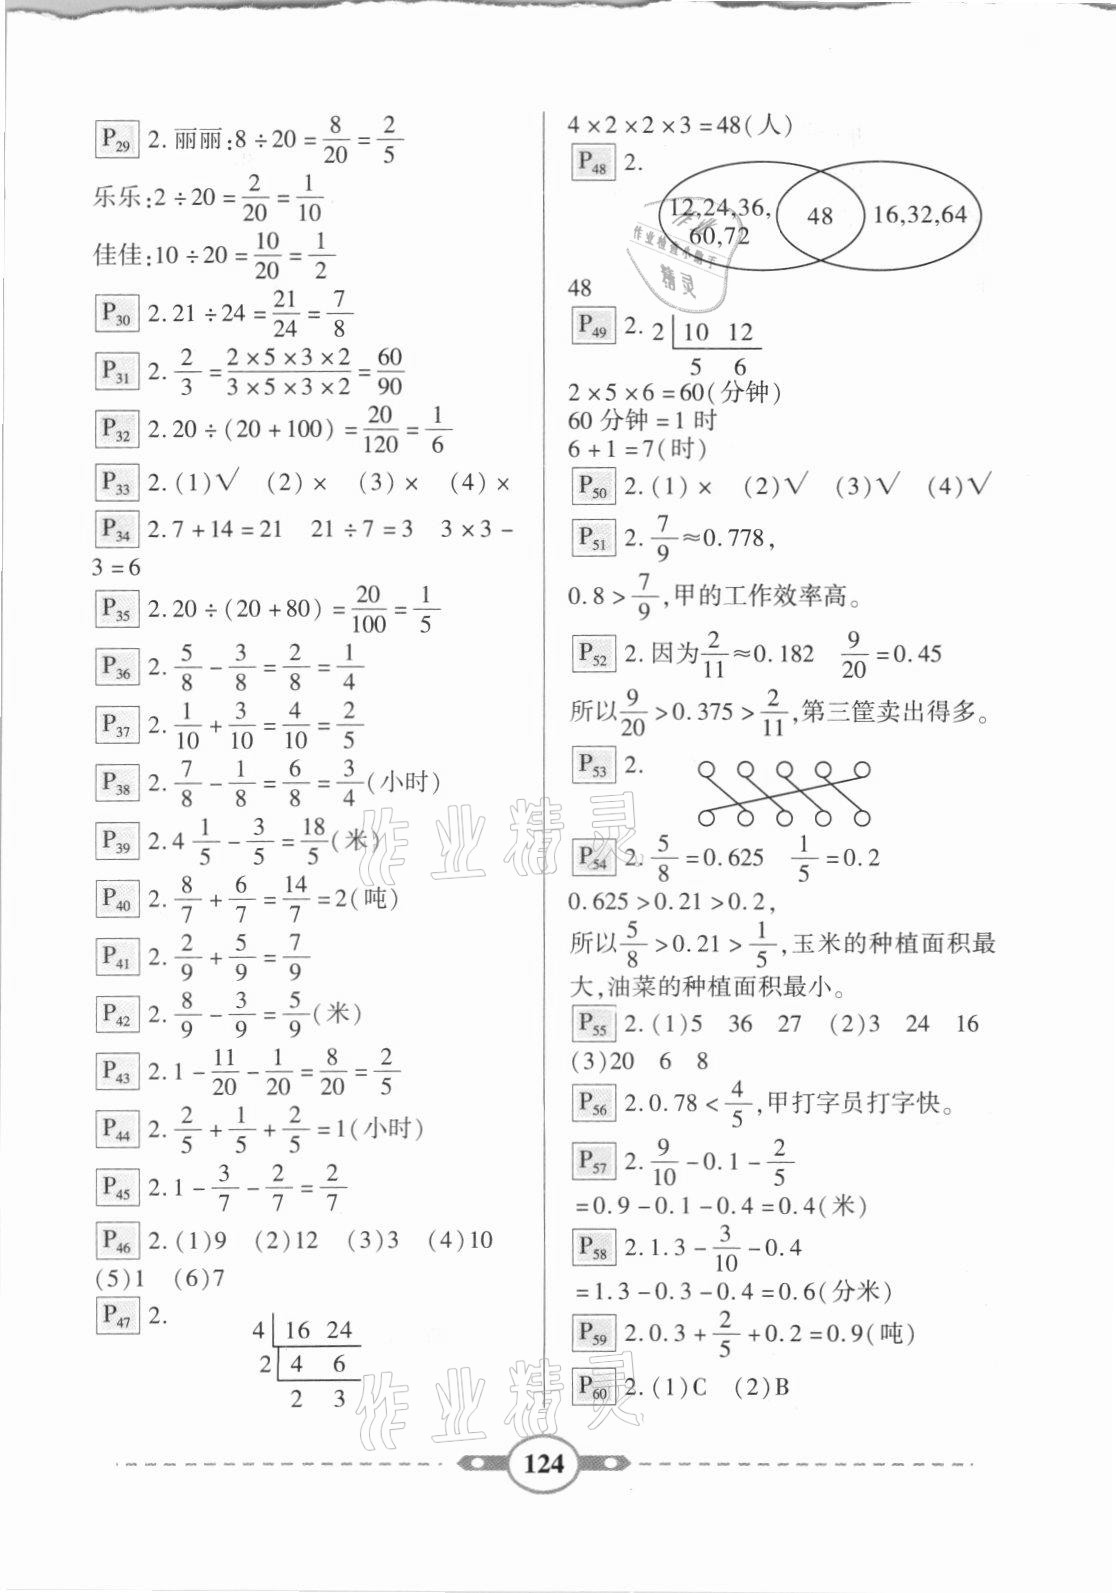 P29 2.丽丽:8÷20=8/20=2/5
乐乐:2÷20=2/20=1/10
佳佳:10÷20=10/20=1/2
P30 2.21÷24=21/24=7/8
P31 2.2/3=2×5×3×2/3×5×3×2=60/90
P32 2.20÷(20+100)=20/120=1/6
P33 2.(1)√ (2)× (3)× (4)×
P34 2.7+14=21 21÷7=3 3×3-
3=6
P35 2.20÷(20+80)=20/100=1/5
P36 2.5/8-3/8=2/8=1/4
P37 2.1/10+3/10=4/10=2/5
P38 2.7/8-1/8=6/8=3/4(小时)
P39 2.4 1/5-3/5=18/5(米)
P40 2.8/7+6/7=14/7=2(吨)
P41 2.2/9+5/9=7/9
P42 2.8/9-3/9=5/9(米)
P43 2.1-11/20-1/20=8/20=2/5
P44 2.2/5+1/5+2/5=1(小时)
P45 2.1-3/7-2/7=2/7
P46 2.(1)9 (2)12 (3)3 (4)10
(5)1 (6)7
P47 2.
4 16 24
2 4 6
2 3
4×2×2×3=48(人)
P48 2.
12,24,36,
60,72
48
16,32,64
48
P49 2. 2 10 12
5 6
2×5×6=60(分钟)
60分钟=1时
6+1=7(时)
P50 2.(1)× (2)√ (3)√ (4)√
P51 2.7/9≈0.778,
0.8>7/9,甲的工作效率高。
P52 2.因为2/11≈0.182 9/20=0.45
所以9/20>0.375>2/11,第三筐卖出得多。
P53 2.
P54 2.5/8=0.625 1/5=0.2
0.625>0.21>0.2,
所以5/8>0.21>1/5,玉米的种植面积最
大,油菜的种植面积最小。
P55 2.(1)5 36 27 (2)3 24 16
(3)20 6 8
P56 2.0.78<4/5,甲打字员打字快。
P57 2.9/10-0.1-2/5
=0.9-0.1-0.4=0.4(米)
P58 2.1.3-3/10-0.4
=1.3-0.3-0.4=0.6(分米)
P59 2.0.3+2/5+0.2=0.9(吨)
P60 2.(1)C (2)B
124
作业精灵
作业精灵
作业检查小助手
精灵